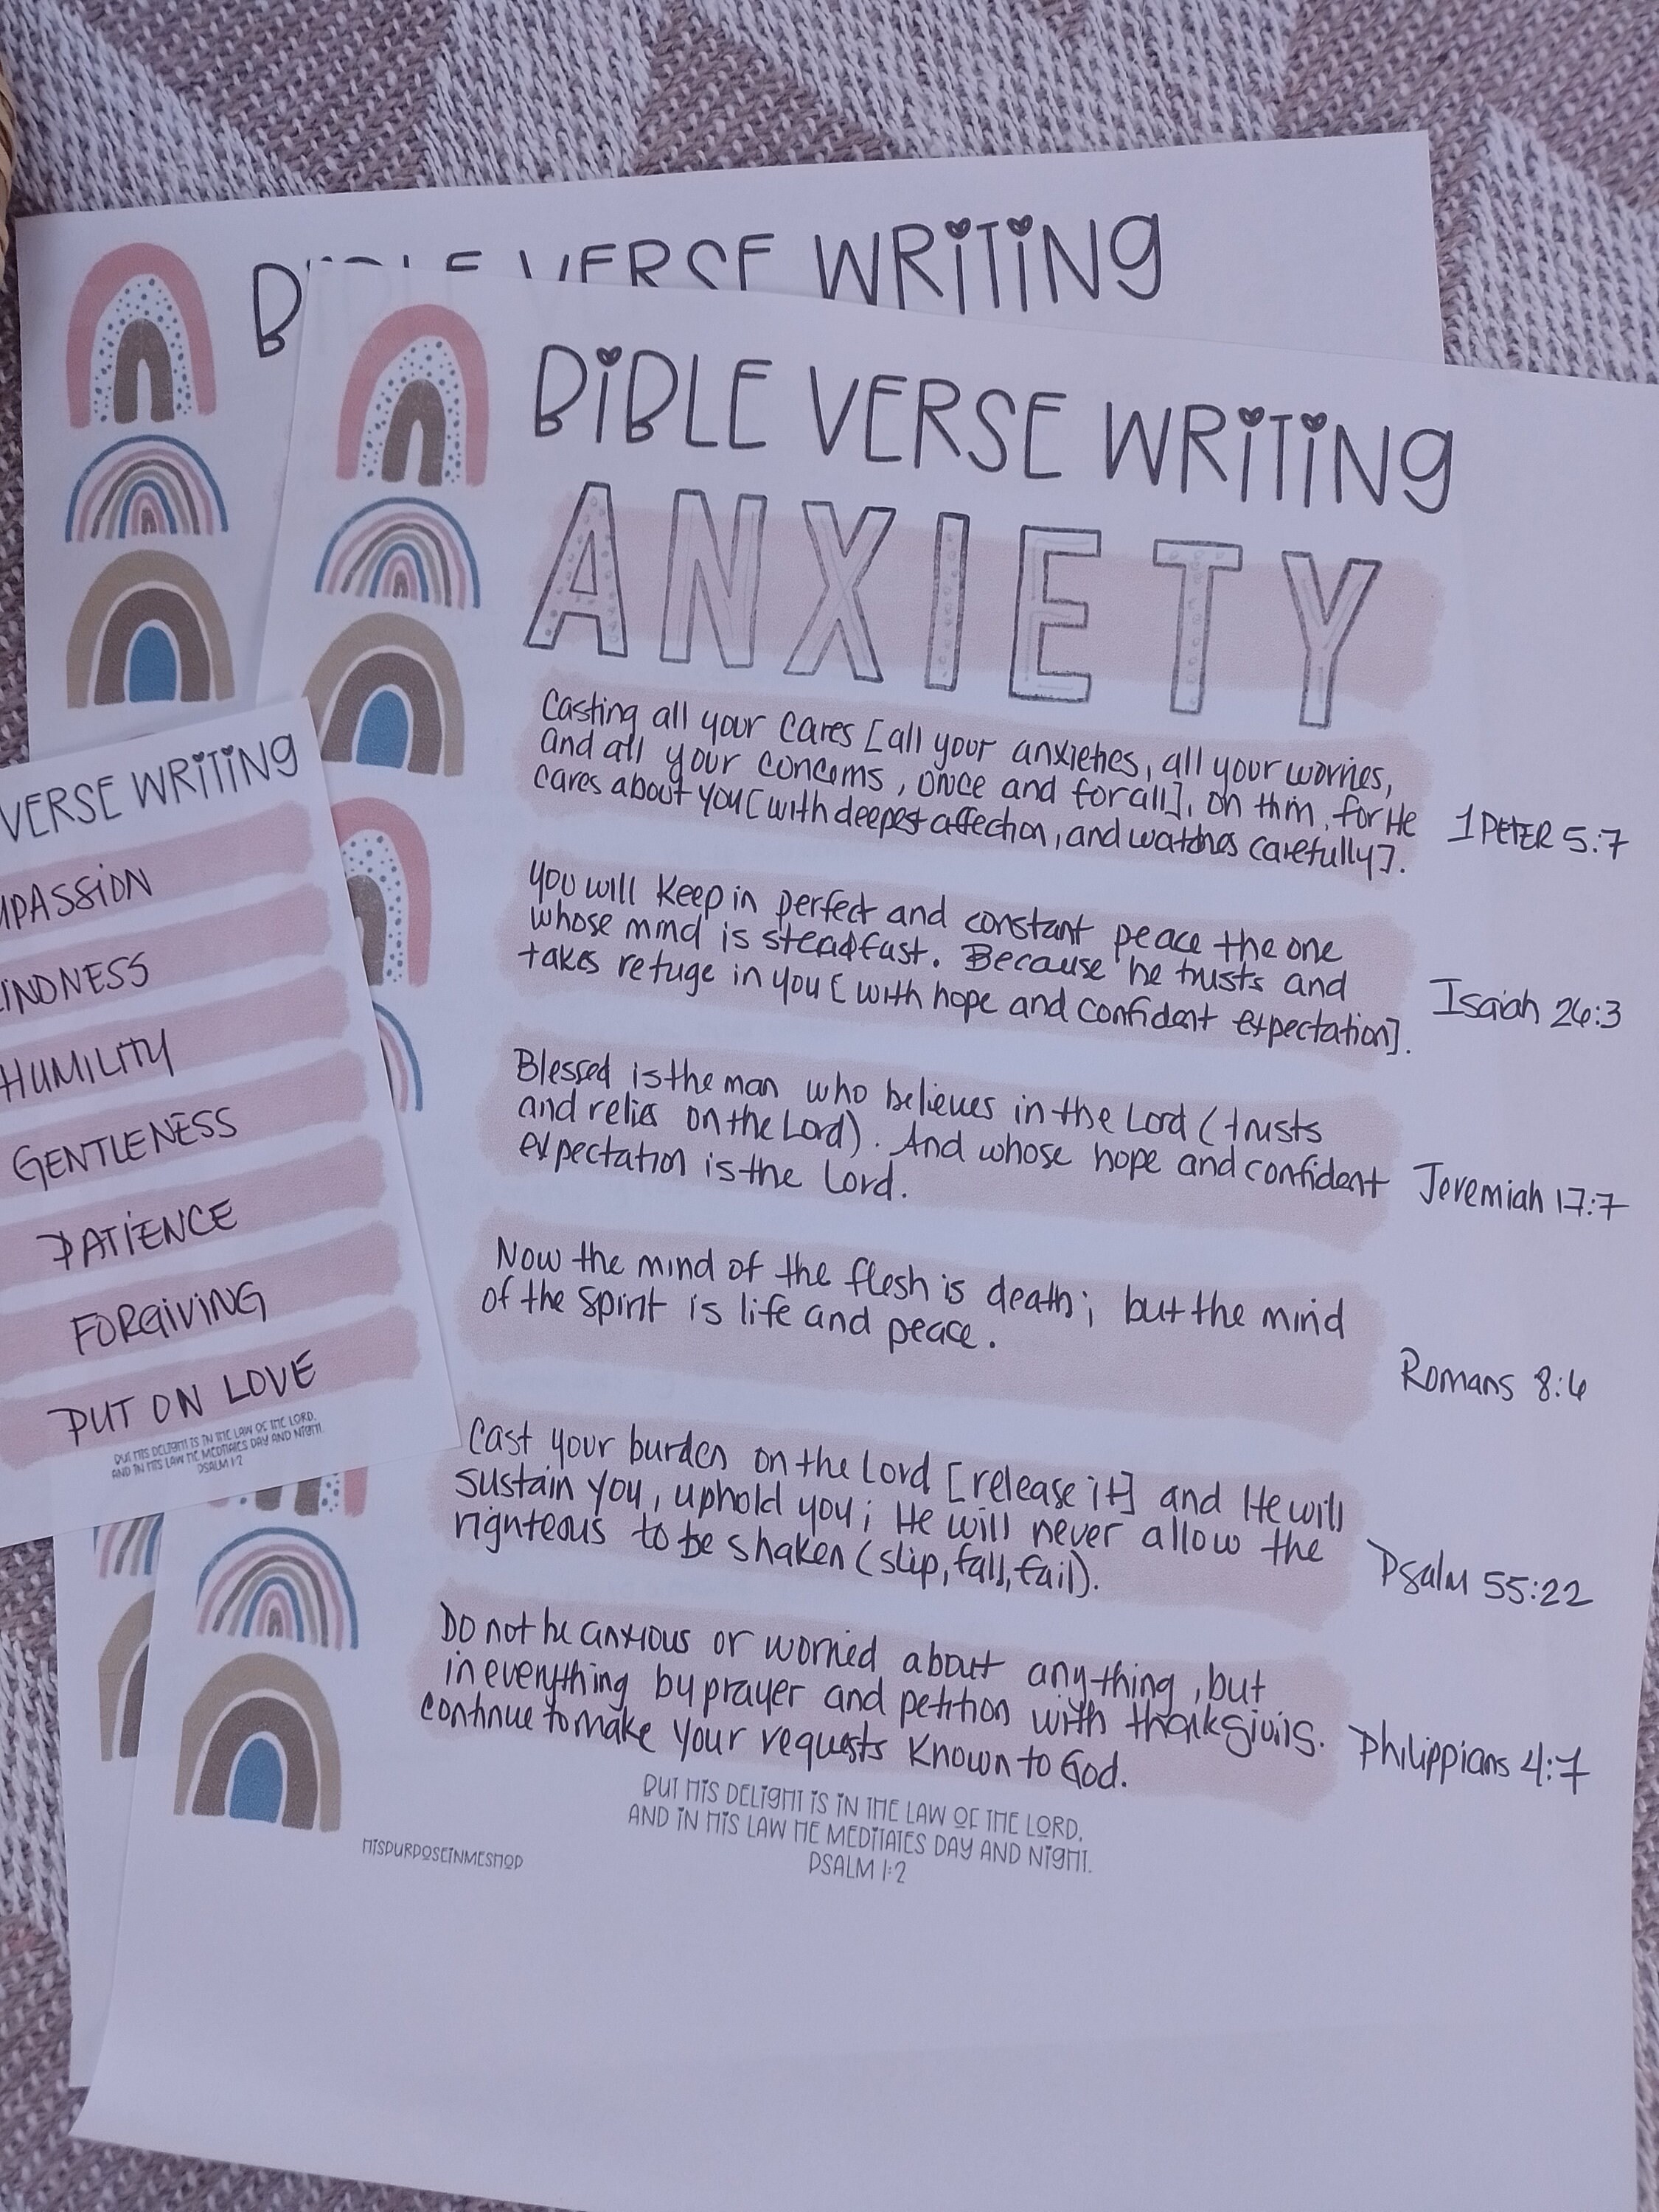 BIBLE VERSE WRITING
BIBLE VERSE WRITING
ANXIETY
Casting all your cares [all your anxieties, all your worries,
and all your concerns, once and for all], on Him, for He
cares about you [with deepest affection, and watches carefully].
1 PETER 5:7
You will keep in perfect and constant peace the one
whose mind is steadfast. Because he trusts and
takes refuge in you [with hope and confident expectation].
Isaiah 26:3
Blessed is the man who believes in the Lord (trusts
and relies on the Lord). And whose hope and confident
expectation is the Lord.
Jeremiah 17:7
Now the mind of the flesh is death; but the mind
of the spirit is life and peace.
Romans 8:6
Cast your burden on the Lord [release it] and He will
sustain you, uphold you; He will never allow the
righteous to be shaken (slip, fall, fail).
Psalm 55:22
Do not be anxious or worried about anything, but
in everything by prayer and petition with
continue to make your requests known to God.
Philippians 4:7
BUT HIS DELIGHT IS IN THE LAW OF THE LORD,
AND IN HIS LAW HE MEDITATES DAY AND NIGHT.
PSALM 1:2
HISPURPOSEINMESHOP
VERSE WRITING
MPASSION
INDNESS
HUMILITY
GENTLENESS
PATIENCE
FORGIVING
PUT ON LOVE
BUT HIS DELIGHT IS IN THE LAW OF THE LORD,
AND IN HIS LAW HE MEDITATES DAY AND NIGHT.
PSALM 1:2